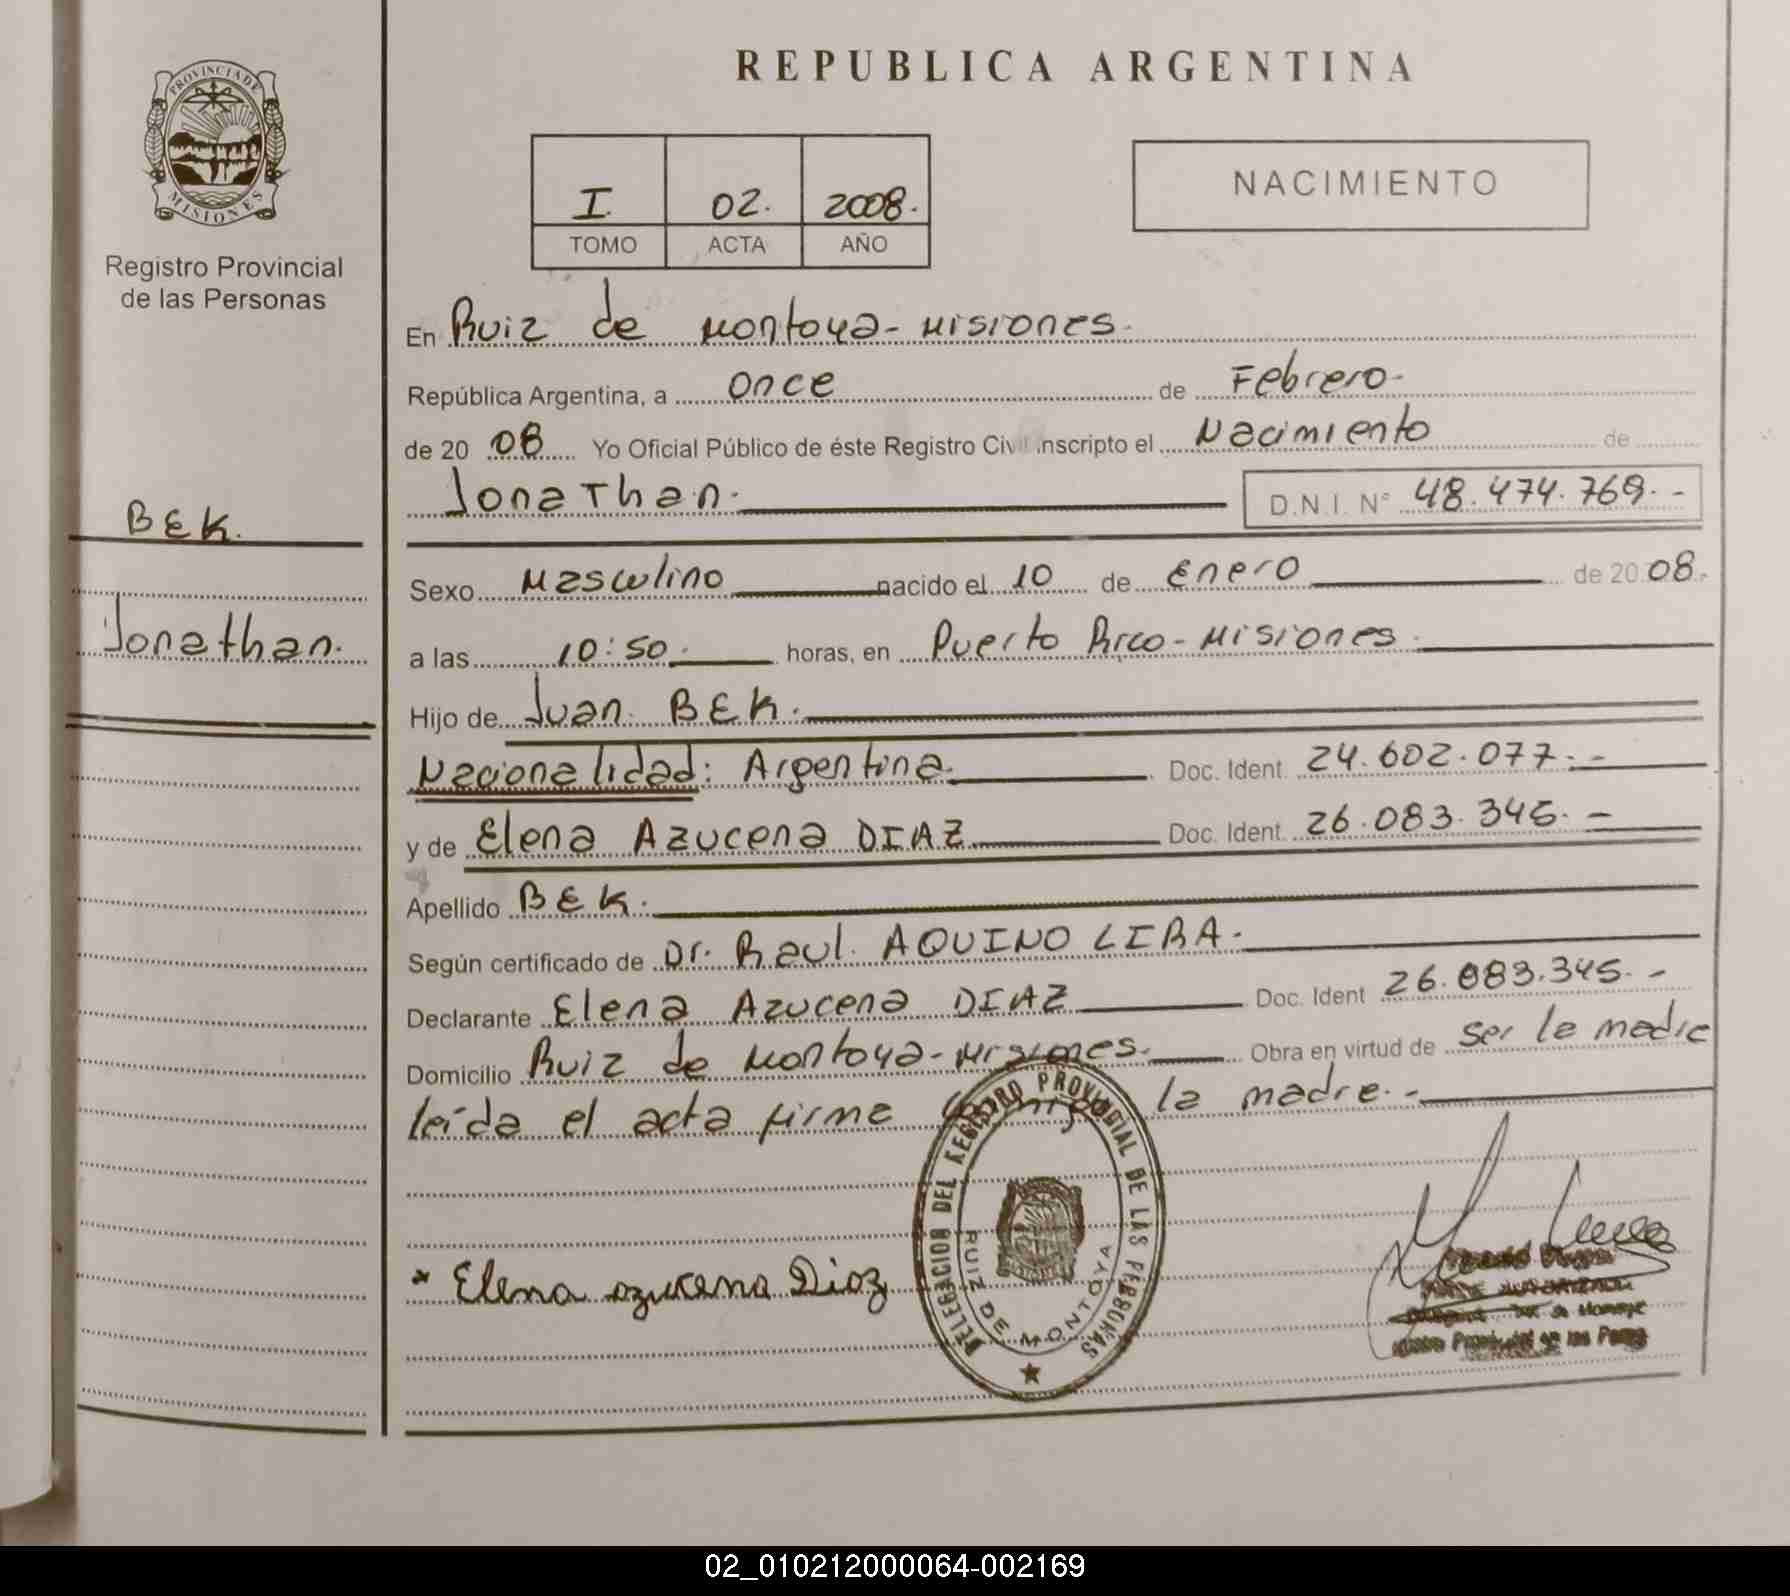 REPUBLICA ARGENTINA
PROVINCIA DE
MISIONES
Registro Provincial
de las Personas
I. 02. 2008.
TOMO ACTA AÑO
NACIMIENTO
En Ruiz de Montoya - Misiones.
República Argentina, a once de Febrero.-
de 20 08 Yo Oficial Público de éste Registro Civil inscripto el Nacimiento de
Jonathan. D.N.I. N° 48.474.769.-
BEK.
Jonathan.
Sexo Masculino nacido el 10 de Enero de 20 08.-
a las 10:50. horas, en Puerto Rico - Misiones.
Hijo de Juan BEK.
Nacionalidad: Argentina. Doc. Ident. 24.602.077.-
y de Elena Azucena DIAZ Doc. Ident. 26.083.345.-
Apellido BEK.
Según certificado de Dr. Raul AQUINO LIBA.
Declarante Elena Azucena DIAZ Doc. Ident 26.083.345.-
Domicilio Ruiz de Montoya - Misiones. Obra en virtud de ser la madre
leída el acta firma conmigo la madre.-
DELEGACION DEL REGISTRO PROVINCIAL DE LAS PERSONAS
RUIZ DE MONTOYA
* Elena azucena Diaz
02_010212000064-002169